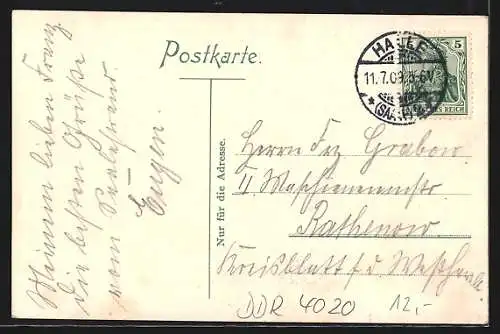 Postkarte.
HALLE
11.7.09. 5-6V
(SAALE)
5
REICH
Meinem lieben Franz
die besten Grüße
vom Saalestrand.
Eugen
Nur für die Adresse.
Herrn Frz Grabow
II Maschinenmeister
Rathenow
Kreisblatt f. d. Westhavelld
DDR 4020 12,-